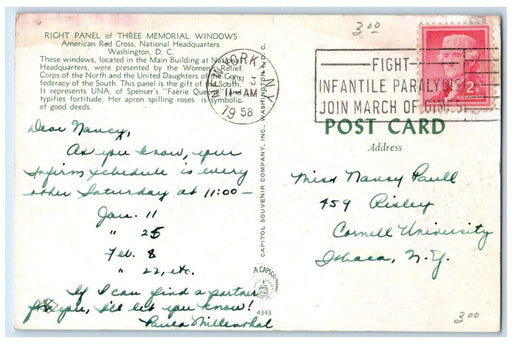 RIGHT PANEL of THREE MEMORIAL WINDOWS
American Red Cross, National Headquarters
Washington, D. C.
These windows, located in the Main Building at National
Headquarters, were presented by the Women's Relief
Corps of the North and the United Daughters of the Con-
federacy of the South. This panel is the gift of the South.
It represents UNA, of Spenser's "Faerie Queene" and
typifies fortitude. Her apron spilling roses is symbolic
of good deeds.
Dear Nancy,
As you know, your
Infirm schedule is every
other Saturday at 11:00—
Jan. 11
" 25
Feb. 8
" 22, etc.
If I can find a partner
for you, I'll let you know!
Paula Millenthal
CAPITOL SOUVENIR COMPANY, INC., WASHINGTON, D.C.
A CAPSCO
4343
3.00
NEW YORK, N.Y.
3
11 AM
1958
FIGHT
INFANTILE PARALYSIS
JOIN MARCH OF DIMES
2¢
POST CARD
Address
Miss Nancy Paull
459 Risley
Cornell University
Ithaca, N.Y.
3.00